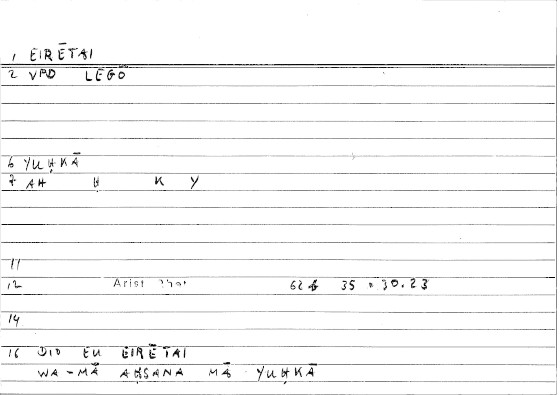 1 EIRĒTAI
2 VPD LEGŌ
6 YUḤKĀ
7 AH Ḥ K Y
11
12 Arist Rhet 62 b 35 = 30.23
14
16 DIO EU EIRĒTAI
WA-MĀ AḤSANA MĀ YUḤKĀ